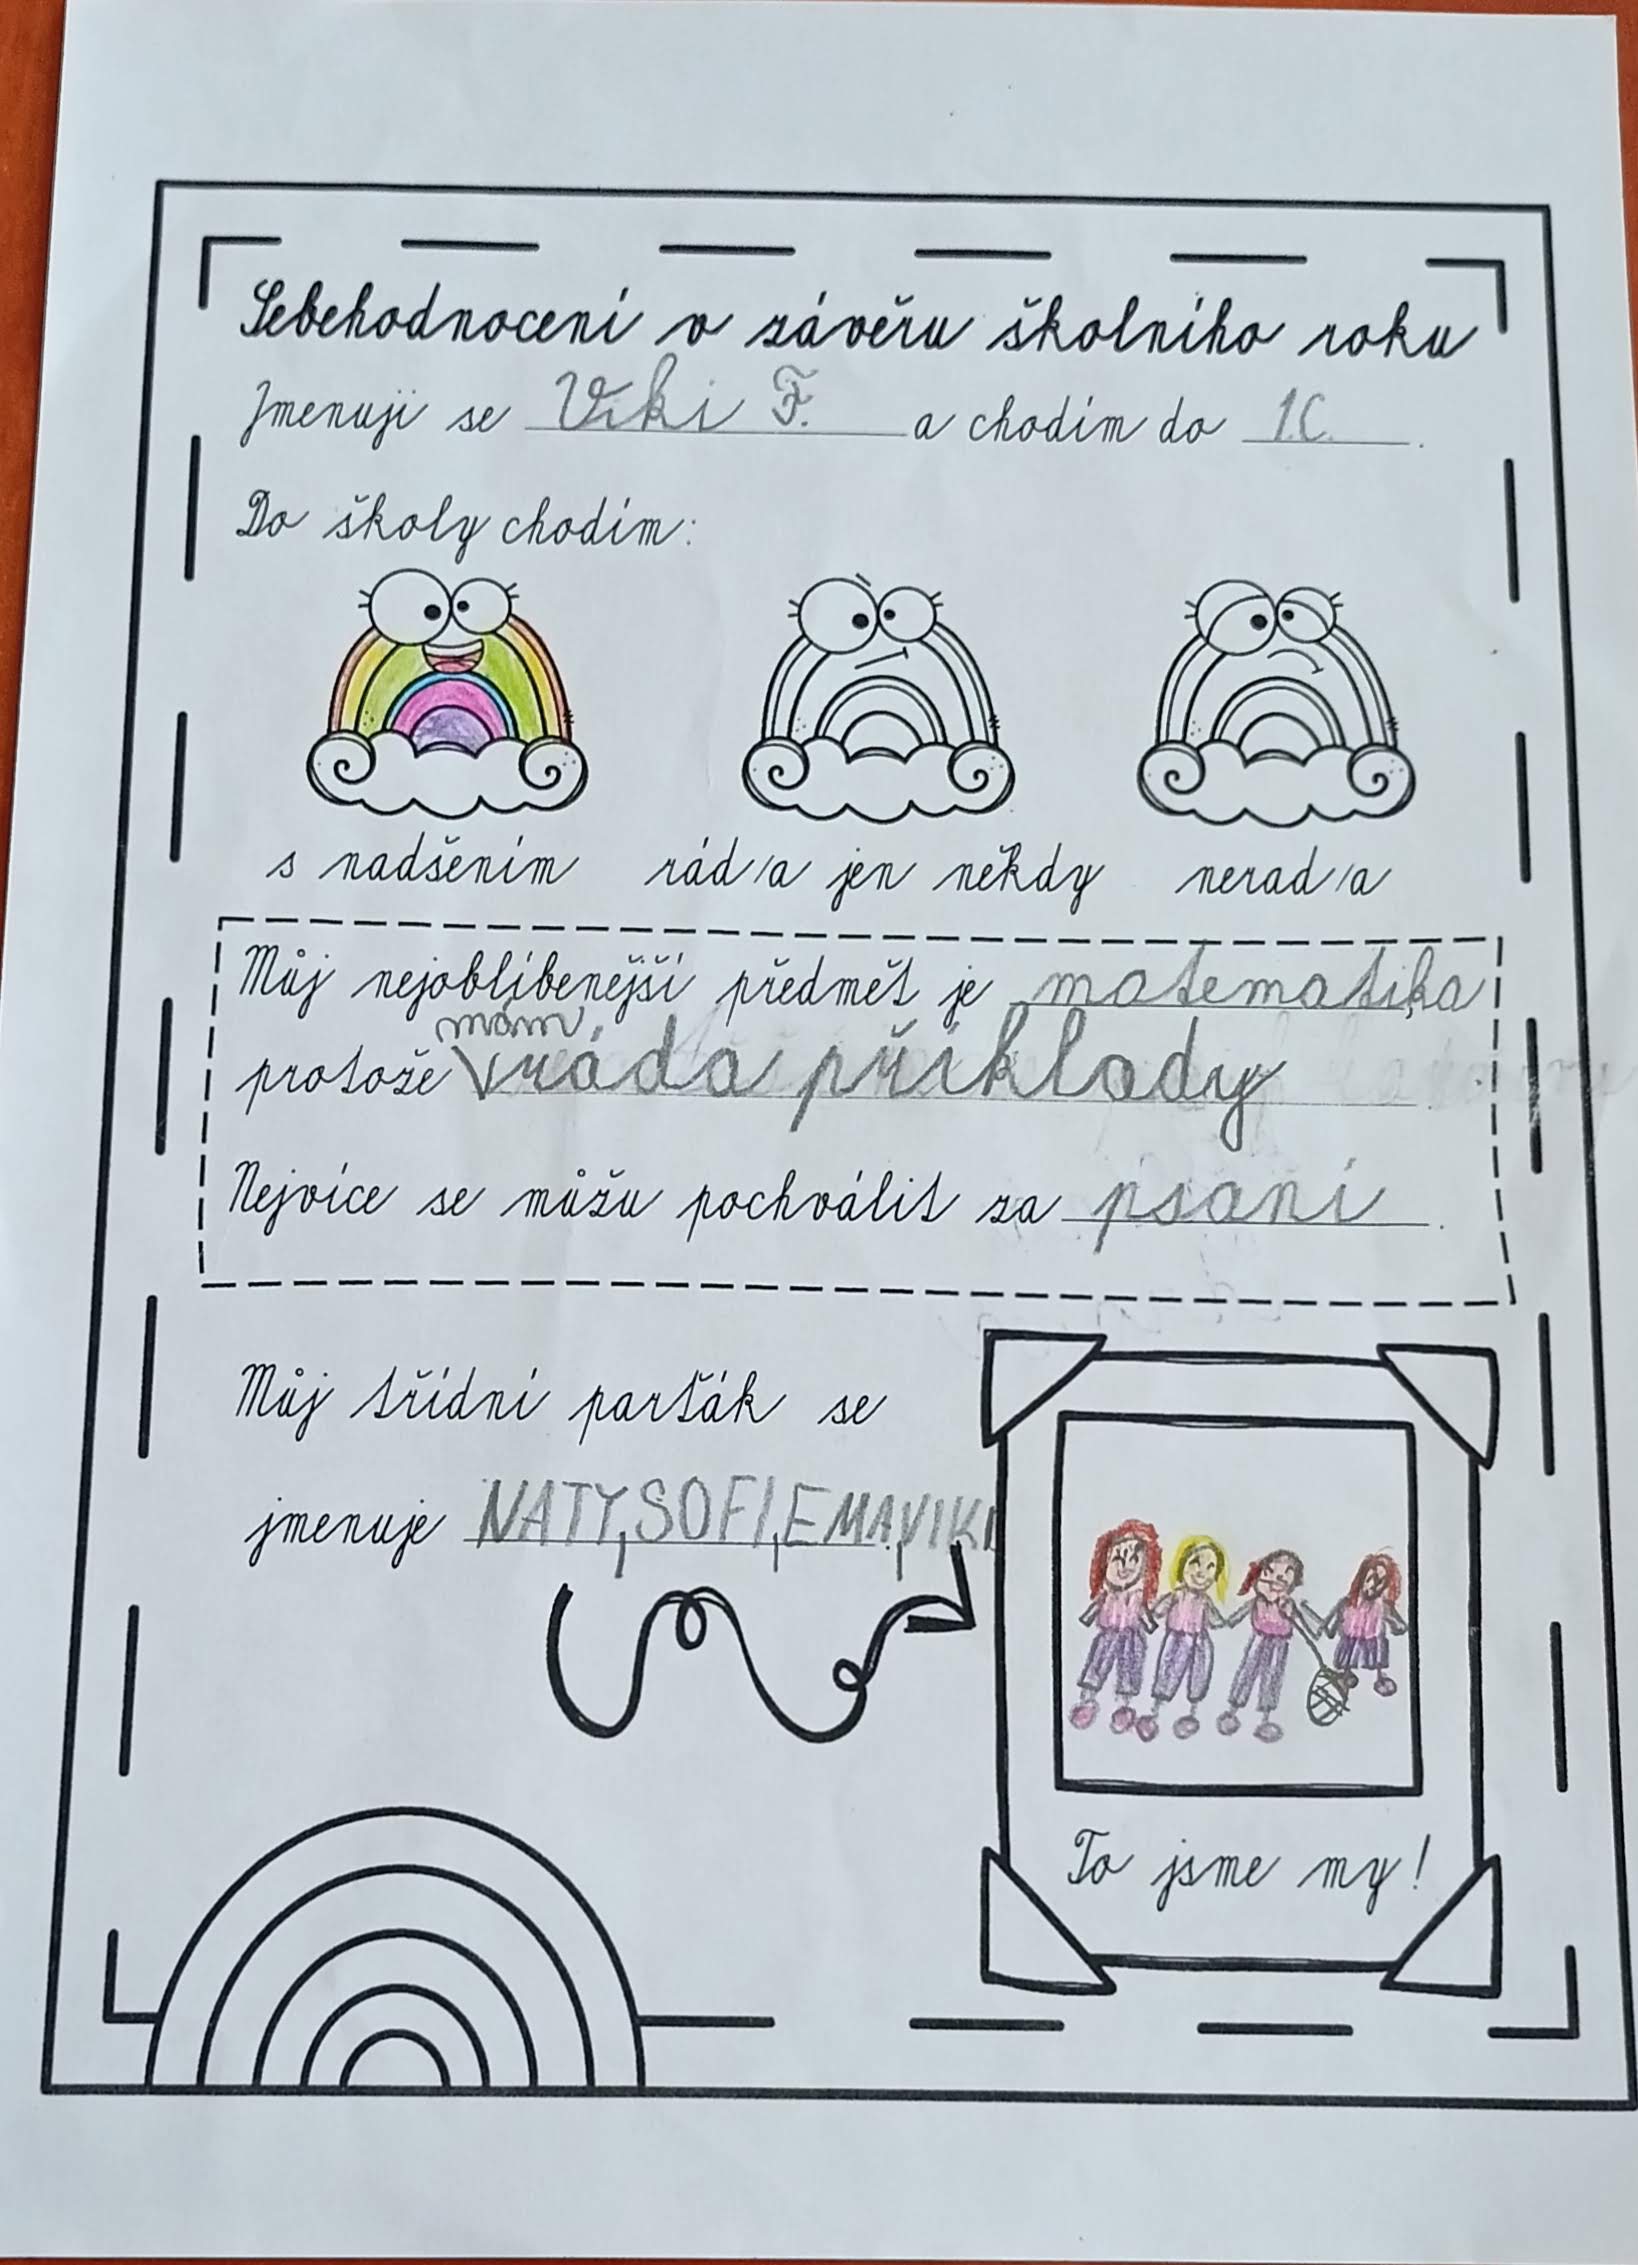 Sebehodnocení v závěru školního roku
Jmenuji se Viki F. a chodím do 1.C.
Do školy chodím:
s nadšením rád/a jen někdy nerad/a
Můj nejoblíbenější předmět je matematika
mám
protože ráda příklady
Nejvíce se můžu pochválit za psaní.
Můj třídní parťák se
jmenuje NATY, SOFI, EMA, VIKI
To jsme my!